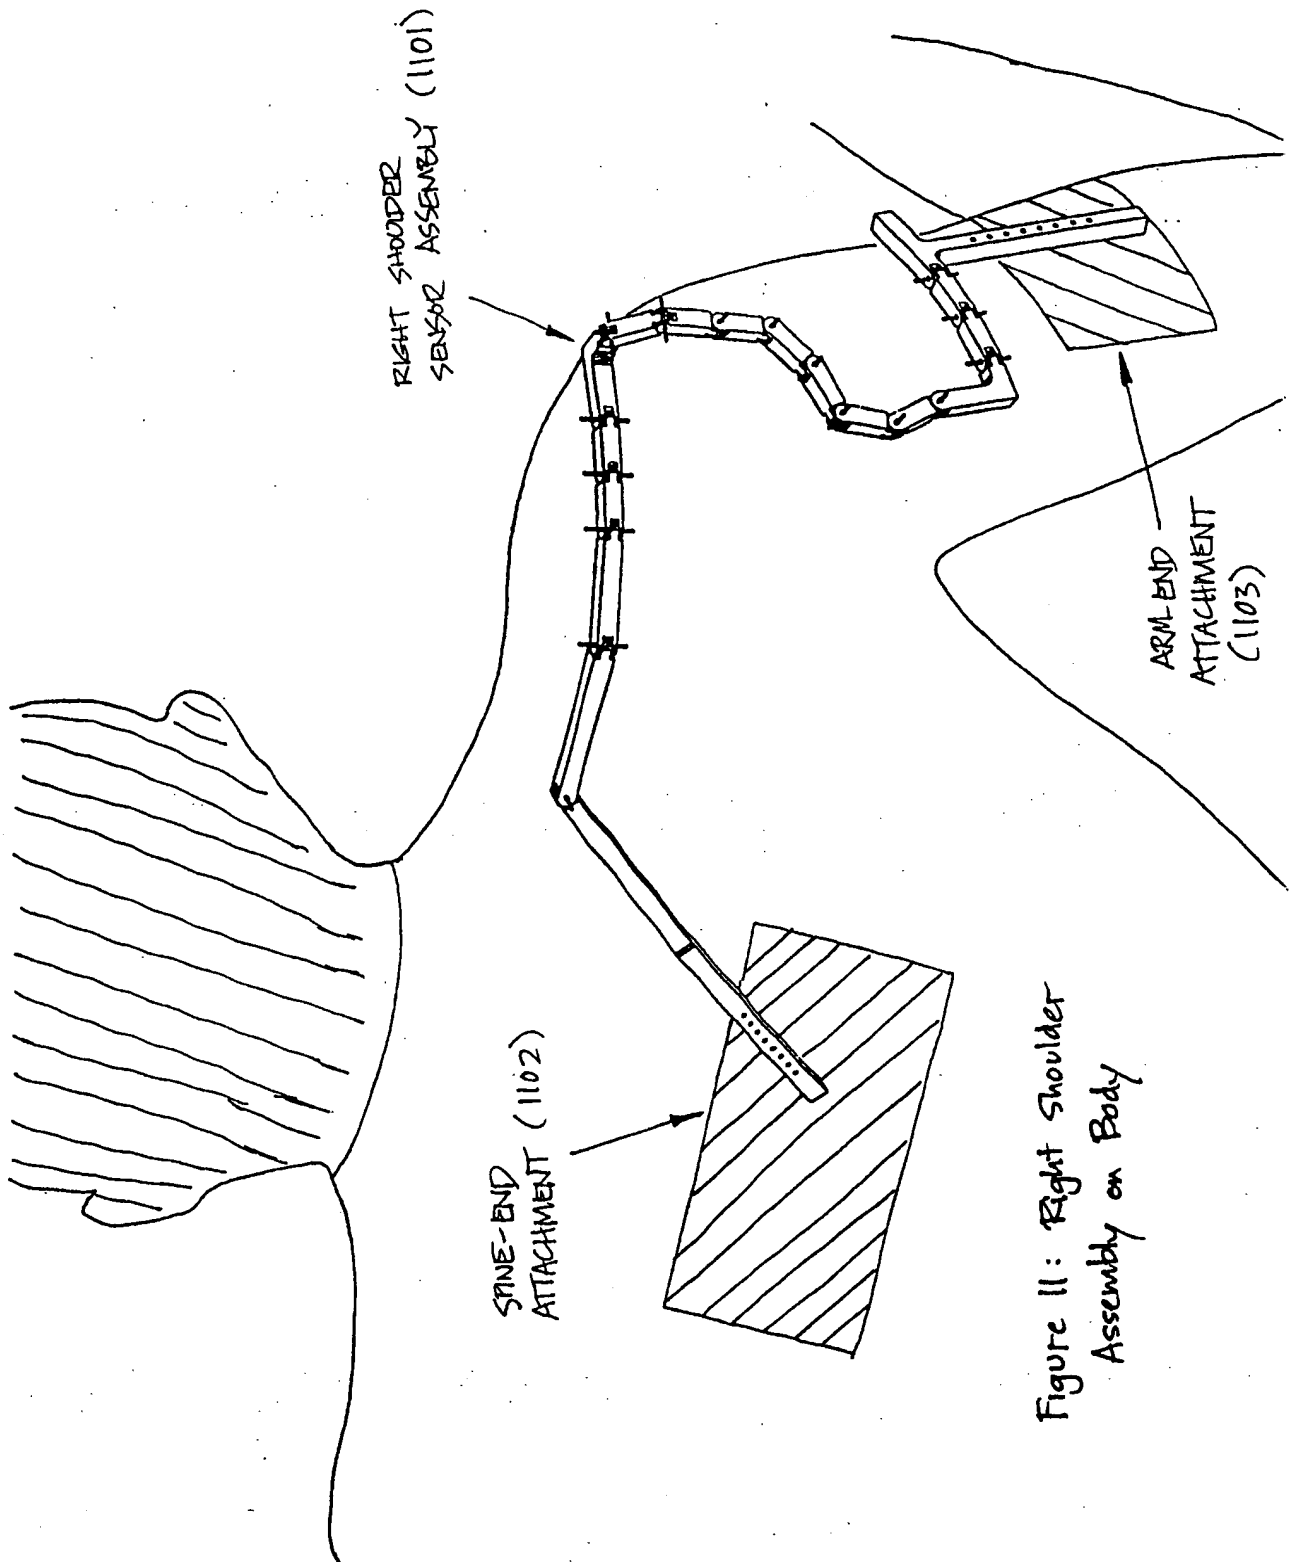 RIGHT SHOULDER
SENSOR ASSEMBLY (1101)
SPINE-END
ATTACHMENT (1102)
ARM-END
ATTACHMENT
(1103)
Figure 11: Right Shoulder
Assembly on Body